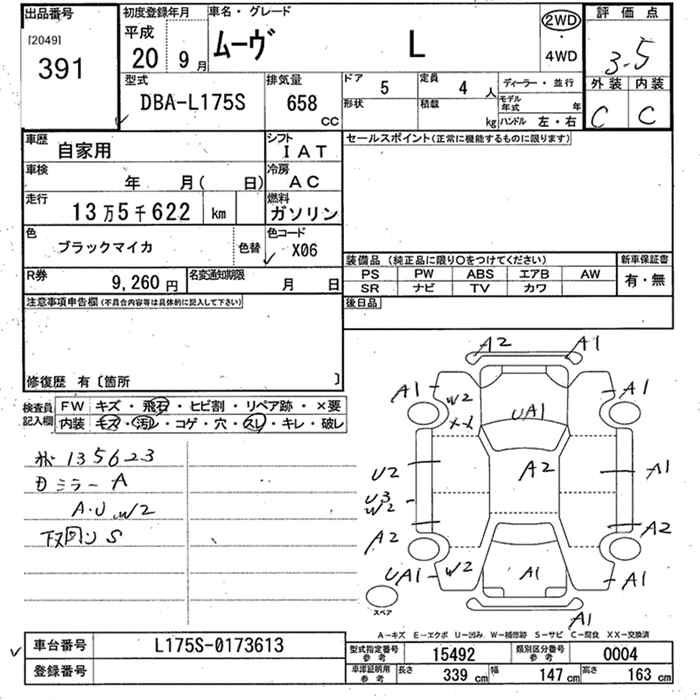 出品番号
[2049]
391
初度登録年月
平成
20 9月
車名・グレード
ムーヴ L
2WD
・
4WD
評価点
3.5
外装 内装
C C
型式
DBA-L175S
排気量
658
CC
ドア
5
定員
4人
形状
積載
kg
ディーラー・並行
モデル年式
年
ハンドル 左・右
車歴
自家用
シフト
IAT
車検
年 月( 日)
冷房
AC
走行
13万5千622 km
燃料
ガソリン
色
ブラックマイカ
色替
色コード
X06
R券
9,260円
名変通知期限
月 日
セールスポイント(正常に機能するものに限ります)
装備品 (純正品に限り○をつけてください)
新車保証書
PS PW ABS エアB AW
SR ナビ TV カワ
有・無
後日品
注意事項申告欄(不具合内容等は具体的に記入して下さい)
修復歴 有〔箇所 〕
検査員記入欄
FW キズ・飛石・ヒビ割・リペア跡・×要
内装 キズ・汚レ・コゲ・穴・スレ・キレ・破レ
135623
ミラー A
A・U W2
S
A2 A1
A1 W2 A1
UA1
U2 A2 A1
U3
W2
A2 A2
UA1 W2 A1 A1
A1
スペア
A-キズ E-エクボ U-凹み W-補修跡 S-サビ C-腐食 XX-交換済
車台番号
L175S-0173613
登録番号
型式指定番号
参考
15492
類別区分番号
参考
0004
車庫証明用
参考
長さ 339 cm 幅 147 cm 高さ 163 cm